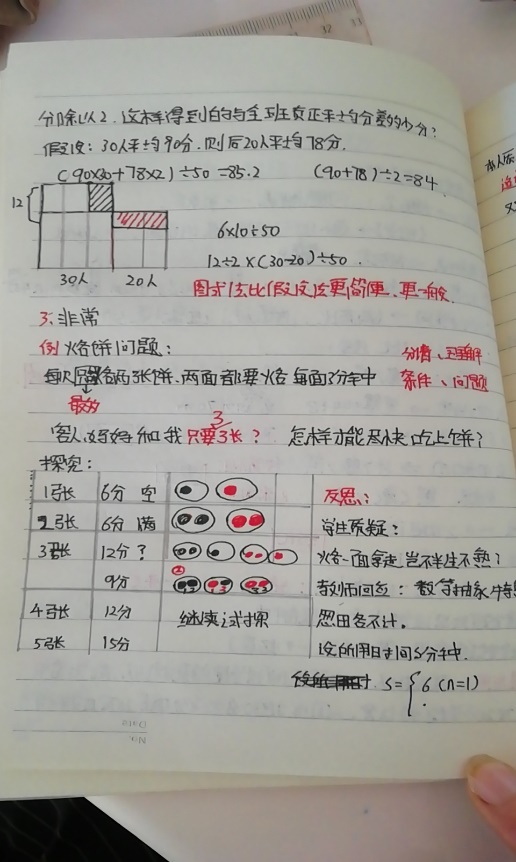 分除以2.这样得到的与全班真正平均分差多少分?
假设:30人平均90分.则后20人平均78分.
(90×30+78×2)÷50=85.2 (90+78)÷2=84
12
6×10÷50
12÷2×(30-20)÷50.
30人 20人
图式法比假设法更简便.更一般.
3.非常
例 烙饼问题:
分清、理解
每次只能烙两张饼.两面都要烙 每面3分钟
条件、问题
最多
3
客人妈妈和我 只要3张? 怎样才能尽快吃上饼?
探究:
1张 6分 空
反思:
2张 6分 满
学生质疑:
3张 12分?
烙一面拿走岂不半生不熟?
9分
教师回应:数学抽象
4张 12分 继续试探
忽略不计.
5张 15分
设所用时间S分钟.
S={6 (n=1)